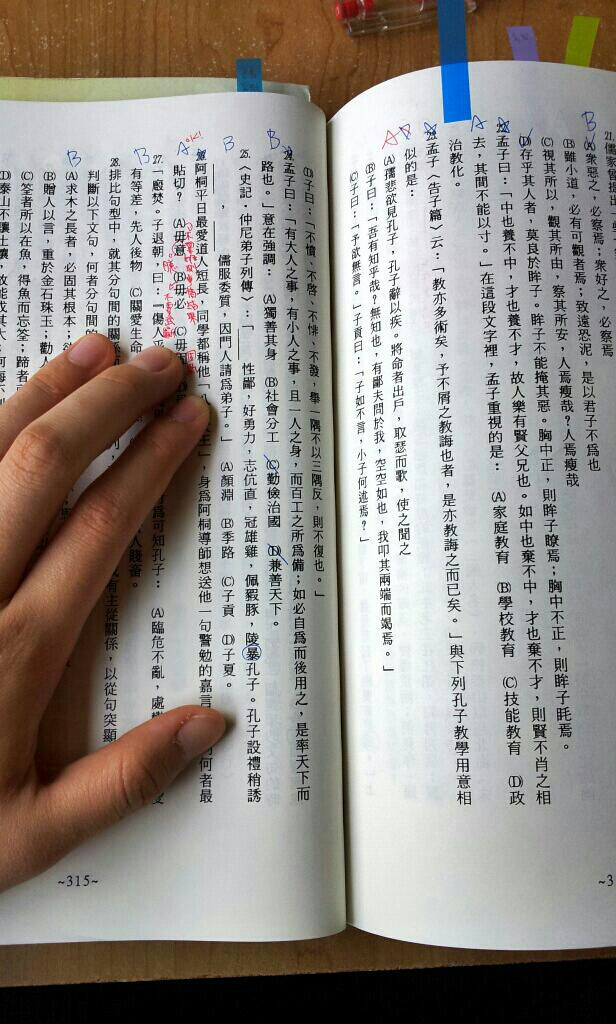 21.
(A)衆惡之，必察焉；衆好之，必察焉
(B)雖小道，必有可觀者焉；致遠恐泥，是以君子不為也
(C)視其所以，觀其所由，察其所安，人焉廋哉？人焉廋哉
(D)存乎其人者，莫良於眸子。眸子不能掩其惡。胸中正，則眸子瞭焉；胸中不正，則眸子眊焉。
22.孟子曰：「中也養不中，才也養不才，故人樂有賢父兄也。如中也棄不中，才也棄不才，則賢不肖之相
去，其間不能以寸。」在這段文字裡，孟子重視的是： (A)家庭教育 (B)學校教育 (C)技能教育 (D)政
治教化。
23.孟子〈告子篇〉云：「教亦多術矣，予不屑之教誨也者，是亦教誨之而已矣。」與下列孔子教學用意相
似的是：
(A)孺悲欲見孔子，孔子辭以疾，將命者出戶，取瑟而歌，使之聞之
(B)子曰：「吾有知乎哉？無知也，有鄙夫問於我，空空如也，我叩其兩端而竭焉。」
(C)子曰：「予欲無言。」子貢曰：「子如不言，小子何述焉？」
(D)子曰：「不憤、不啓、不悱、不發，舉一隅不以三隅反，則不復也。」
24.孟子曰：「有大人之事，有小人之事，且一人之身，而百工之所為備；如必自為而後用之，是率天下而
路也。」意在強調： (A)獨善其身 (B)社會分工 (C)勤儉治國 (D)兼善天下。
25.〈史記．仲尼弟子列傳〉：「 性鄙，好勇力，志伉直，冠雄雞，佩豭豚，陵暴孔子。孔子設禮稍誘
， 儒服委質，因門人請為弟子。」 (A)顏淵 (B)季路 (C)子貢 (D)子夏。
26.阿桐平日最愛道人短長，同學都稱他「八 王」，身為阿桐導師想送他一句警勉的嘉言 何者最
貼切？ (A)毋意 (B)毋必 (C)毋
27.「廄焚。子退朝，曰：『傷人乎 為可知孔子： (A)臨危不亂，處
有等差，先人後物 (C)關愛生命 人賤畜。
28.排比句型中，就其分句間的關係 有主從關係，以從句突顯
判斷以下文句，何者分句間的
(A)求木之長者，必固其根本；欲
(B)贈人以言，重於金石珠玉；勸人
(C)筌者所以在魚，得魚而忘筌；蹄者
(D)泰山不讓土壤，故能成其大；河海
B
A
A
A
B
B
A OK!
B
B
~315~
~3